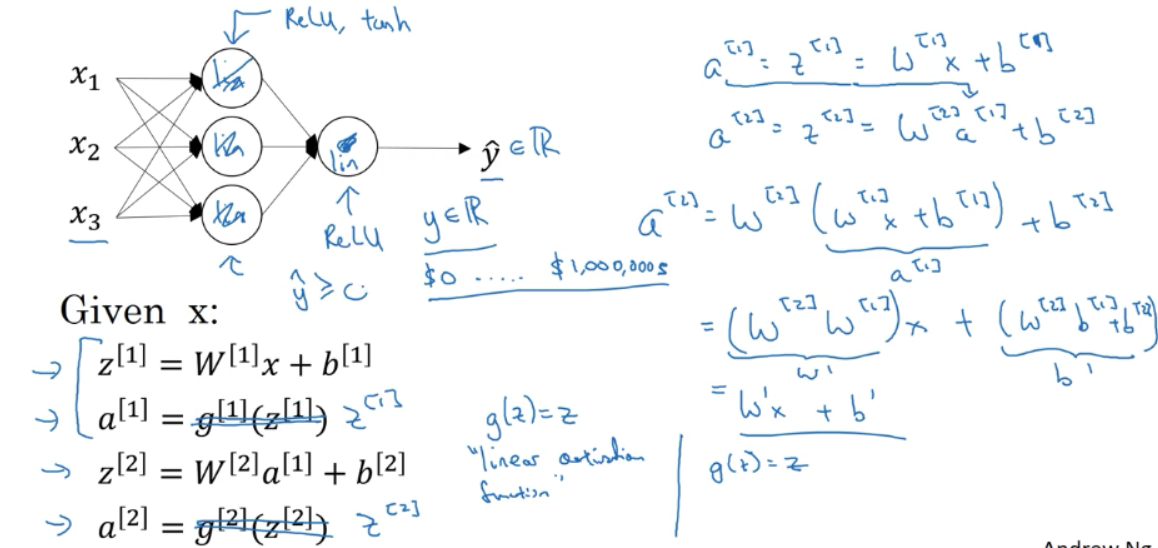 ReLU, tanh
x₁
x₂
x₃
lin
ŷ ∈ ℝ
ReLU
y ∈ ℝ
ŷ ≥ 0
$0 ..... $1,000,000s
Given x:
→ z^[1] = W^[1]x + b^[1]
→ a^[1] = g^[1](z^[1]) z^[1]
→ z^[2] = W^[2]a^[1] + b^[2]
→ a^[2] = g^[2](z^[2]) z^[2]
g(z) = z
"linear activation
function"
a^[1] = z^[1] = W^[1]x + b^[1]
a^[2] = z^[2] = W^[2]a^[1] + b^[2]
a^[2] = W^[2](W^[1]x + b^[1]) + b^[2]
a^[1]
= (W^[2]W^[1])x + (W^[2]b^[1] + b^[2])
W' b'
= W'x + b'
g(z) = z
Andrew Ng